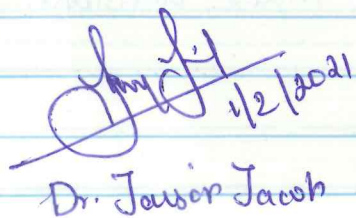 1/2/2021
Dr. Jaison Jacob